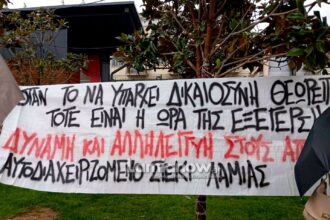 ΌΤΑΝ ΤΟ ΝΑ ΥΠΑΡΧΕΙ ΔΙΚΑΙΟΣΥΝΗ ΘΕΩΡΕΙΤ
ΤΟΤΕ ΕΙΝΑΙ Η ΩΡΑ ΤΗΣ ΕΞΕΓΕΡΣΗ
ΔΥΝΑΜΗ ΚΑΙ ΑΛΛΗΛΕΓΓΥΗ ΣΤΟΥΣ
ΑΥΤΟΔΙΑΧΕΙΡΙΖΟΜΕΝΟ ΣΤΕΚΙ ΛΑΜΙΑΣ